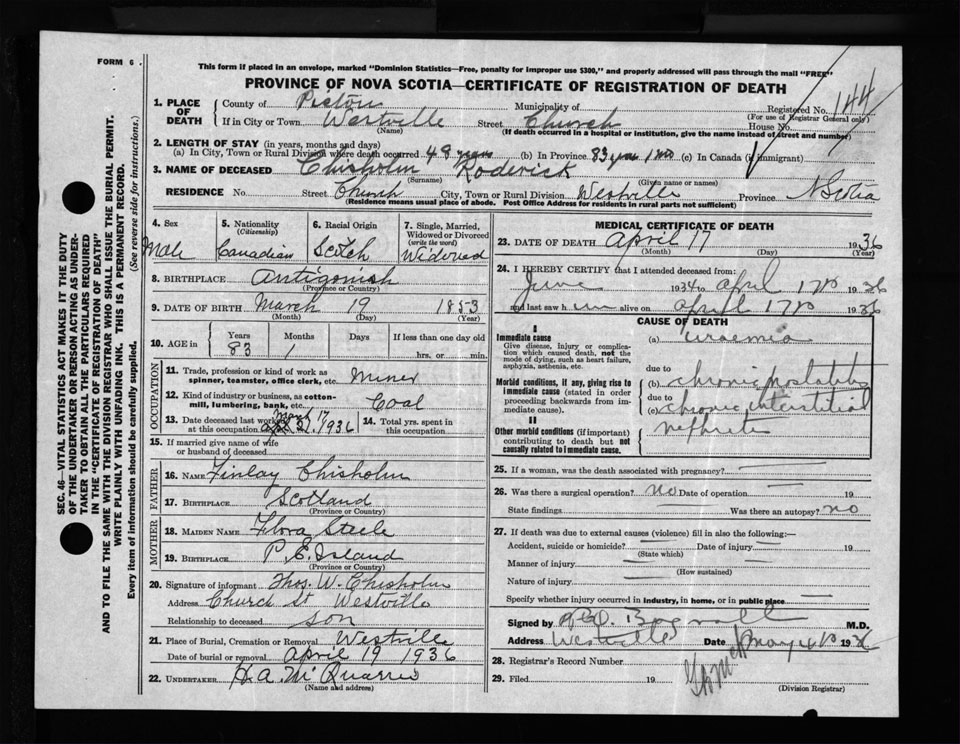 FORM 6.
This form if placed in an envelope, marked "Dominion Statistics—Free, penalty for improper use $300," and properly addressed will pass through the mail "FREE"
PROVINCE OF NOVA SCOTIA—CERTIFICATE OF REGISTRATION OF DEATH
SEC. 46—VITAL STATISTICS ACT MAKES IT THE DUTY
OF THE UNDERTAKER OR PERSON ACTING AS UNDER-
TAKER TO OBTAIN ALL THE PARTICULARS REQUIRED
IN THE "CERTIFICATE OF REGISTRATION OF DEATH"
AND TO FILE THE SAME WITH THE DIVISION REGISTRAR WHO SHALL ISSUE THE BURIAL PERMIT.
WRITE PLAINLY WITH UNFADING INK. THIS IS A PERMANENT RECORD.
Every item of information should be carefully supplied. (See reverse side for instructions.)
1. PLACE OF DEATH County of Pictou Municipality of Registered No. 144
(For use of Registrar General only)
If in City or Town Westville Street Church House No.
(Name) (If death occurred in a hospital or institution, give the name instead of street and number)
2. LENGTH OF STAY (in years, months and days)
(a) In City, Town or Rural Division where death occurred 48 years (b) In Province 83 yrs 1 mo (c) In Canada (if immigrant)
3. NAME OF DECEASED Chisholm Roderick
(Surname) (Given name or names)
RESIDENCE No. Street Church City, Town or Rural Division Westville Province N Scotia
(Residence means usual place of abode. Post Office Address for residents in rural parts not sufficient)
4. Sex Male
5. Nationality (Citizenship) Canadian
6. Racial Origin Scotch
7. Single, Married, Widowed or Divorced (write the word) Widowed
8. BIRTHPLACE Antigonish
(Province or Country)
9. DATE OF BIRTH March 19 1853
(Month) (Day) (Year)
10. AGE in Years Months Days If less than one day old
83 1 hrs. or min.
OCCUPATION
11. Trade, profession or kind of work as spinner, teamster, office clerk, etc. Miner
12. Kind of industry or business, as cotton-mill, lumbering, bank, etc. Coal
13. Date deceased last worked at this occupation 1936
14. Total yrs. spent in this occupation
15. If married give name of wife or husband of deceased
FATHER
16. NAME Finlay Chisholm
17. BIRTHPLACE Scotland
(Province or Country)
MOTHER
18. MAIDEN NAME Flora Steele
19. BIRTHPLACE P. E. Island
(Province or Country)
20. Signature of informant Thos. W. Chisholm
Address Church St Westville
Relationship to deceased son
21. Place of Burial, Cremation or Removal Westville
Date of burial or removal April 19 1936
22. UNDERTAKER H. A. McQuarrie
(Name and address)
MEDICAL CERTIFICATE OF DEATH
23. DATE OF DEATH April 17 1936
(Month) (Day) (Year)
24. I HEREBY CERTIFY that I attended deceased from:
June 1934 to April 17th 1936
and last saw h im alive on April 17th 1936
CAUSE OF DEATH
I
Immediate cause
Give disease, injury or complication which caused death, not the mode of dying, such as heart failure, asphyxia, asthenia, etc.
(a) Uraemia
due to
Morbid conditions, if any, giving rise to immediate cause (stated in order proceeding backwards from immediate cause).
(b) chronic prostatitis
due to
(c) chronic interstitial
nephritis
II
Other morbid conditions (if important) contributing to death but not causally related to immediate cause.
25. If a woman, was the death associated with pregnancy?
26. Was there a surgical operation? no Date of operation 19
State findings Was there an autopsy? no
27. If death was due to external causes (violence) fill in also the following:—
Accident, suicide or homicide? Date of injury 19
(State which)
Manner of injury
(How sustained)
Nature of injury
Specify whether injury occurred in industry, in home, or in public place
Signed by M.D.
Address Westville Date May 4th 1936
28. Registrar's Record Number
29. Filed 19
(Division Registrar)